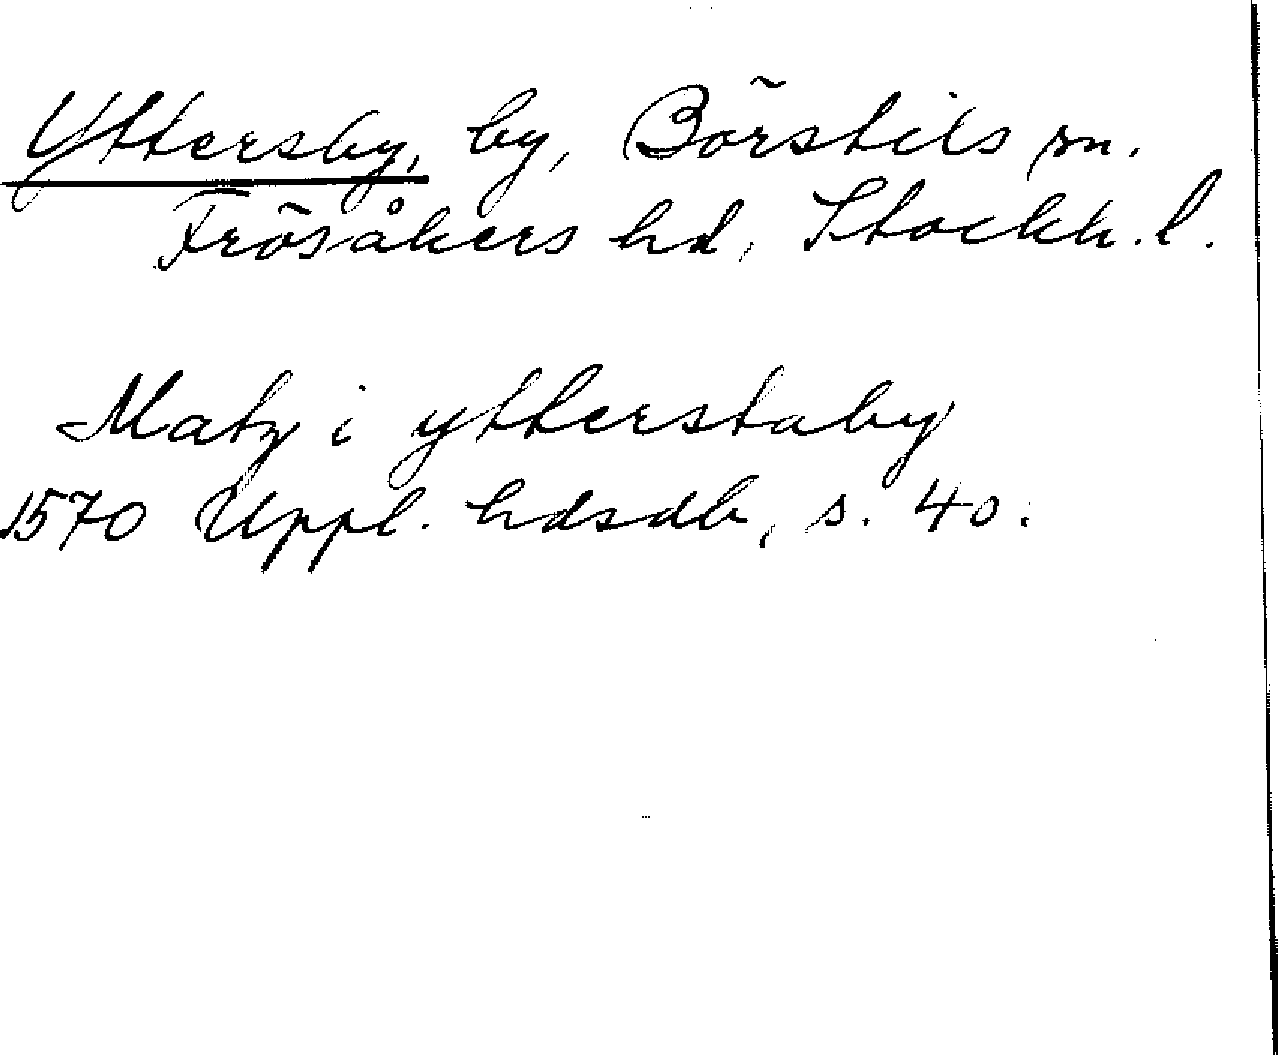 Yttersby, by, Börstils sn.
Frösåkers hd, Stockh. l.
Matz i ytterstaby
1570 Uppl. hdsdb, s. 40.